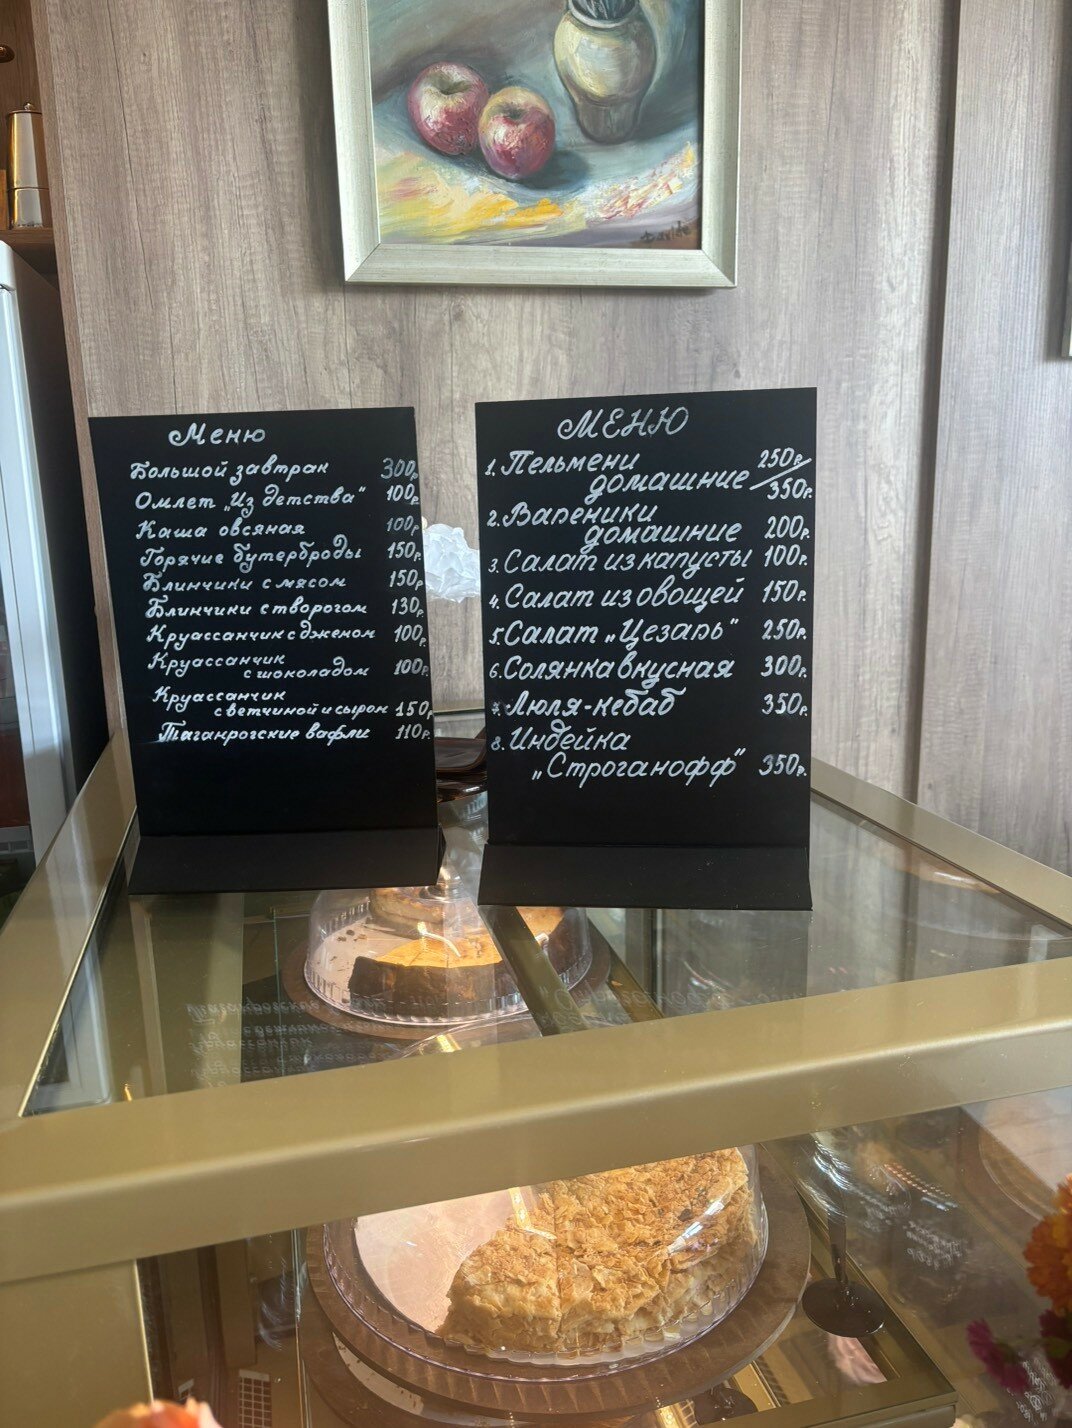 Davide
Меню
Большой завтрак 300р.
Омлет „Из детства" 100р.
Каша овсяная 100р.
Горячие бутерброды 150р.
Блинчики с мясом 150р.
Блинчики с творогом 130р.
Круассанчик с дженом 100р.
Круассанчик
с шоколадом 100р.
Круассанчик
с ветчиной и сыром 150р.
Таганрогские вафли 110р.
МЕНЮ
1. Пельмени 250р./
домашние 350р.
2. Вареники
домашние 200р.
3. Салат из капусты 100р.
4. Салат из овощей 150р.
5. Салат „Цезарь" 250р.
6. Солянка вкусная 300р.
7. Люля-кебаб 350р.
8. Индейка
„Строганофф" 350р.